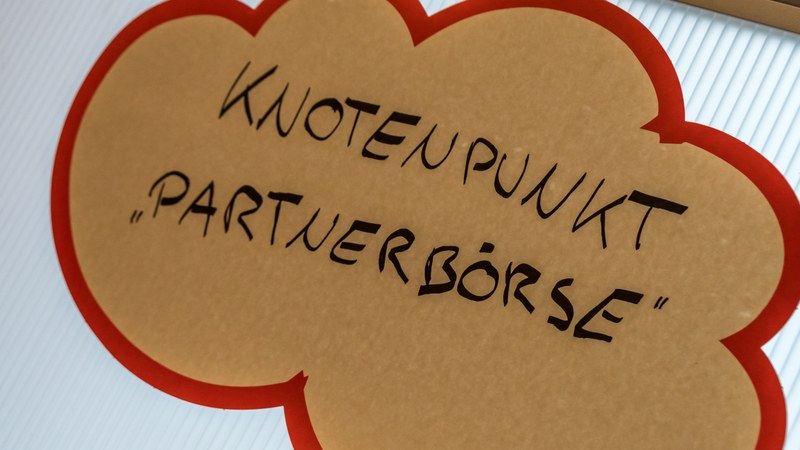 KNOTENPUNKT
„PARTNERBÖRSE"